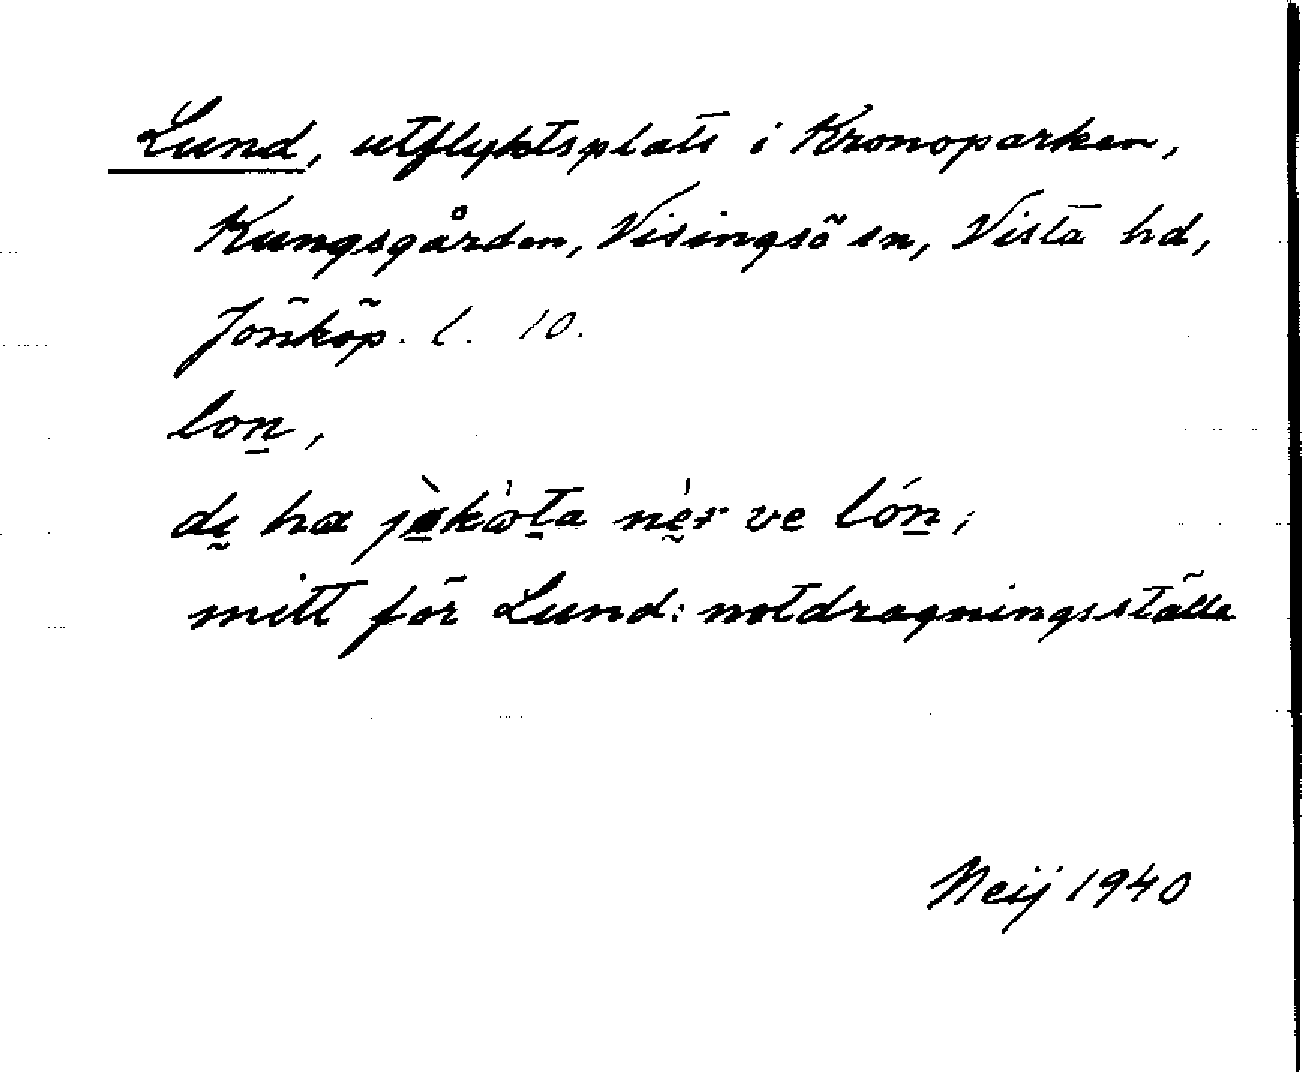 Lund, utflyktsplats i Kronoparken,
Kungsgården, Visingsö sn, Vista hd,
Jönköp. l. 10.
lon̲,
ha ve lón̲;
mitt för Lund: notdragningsställe
Neij 1940